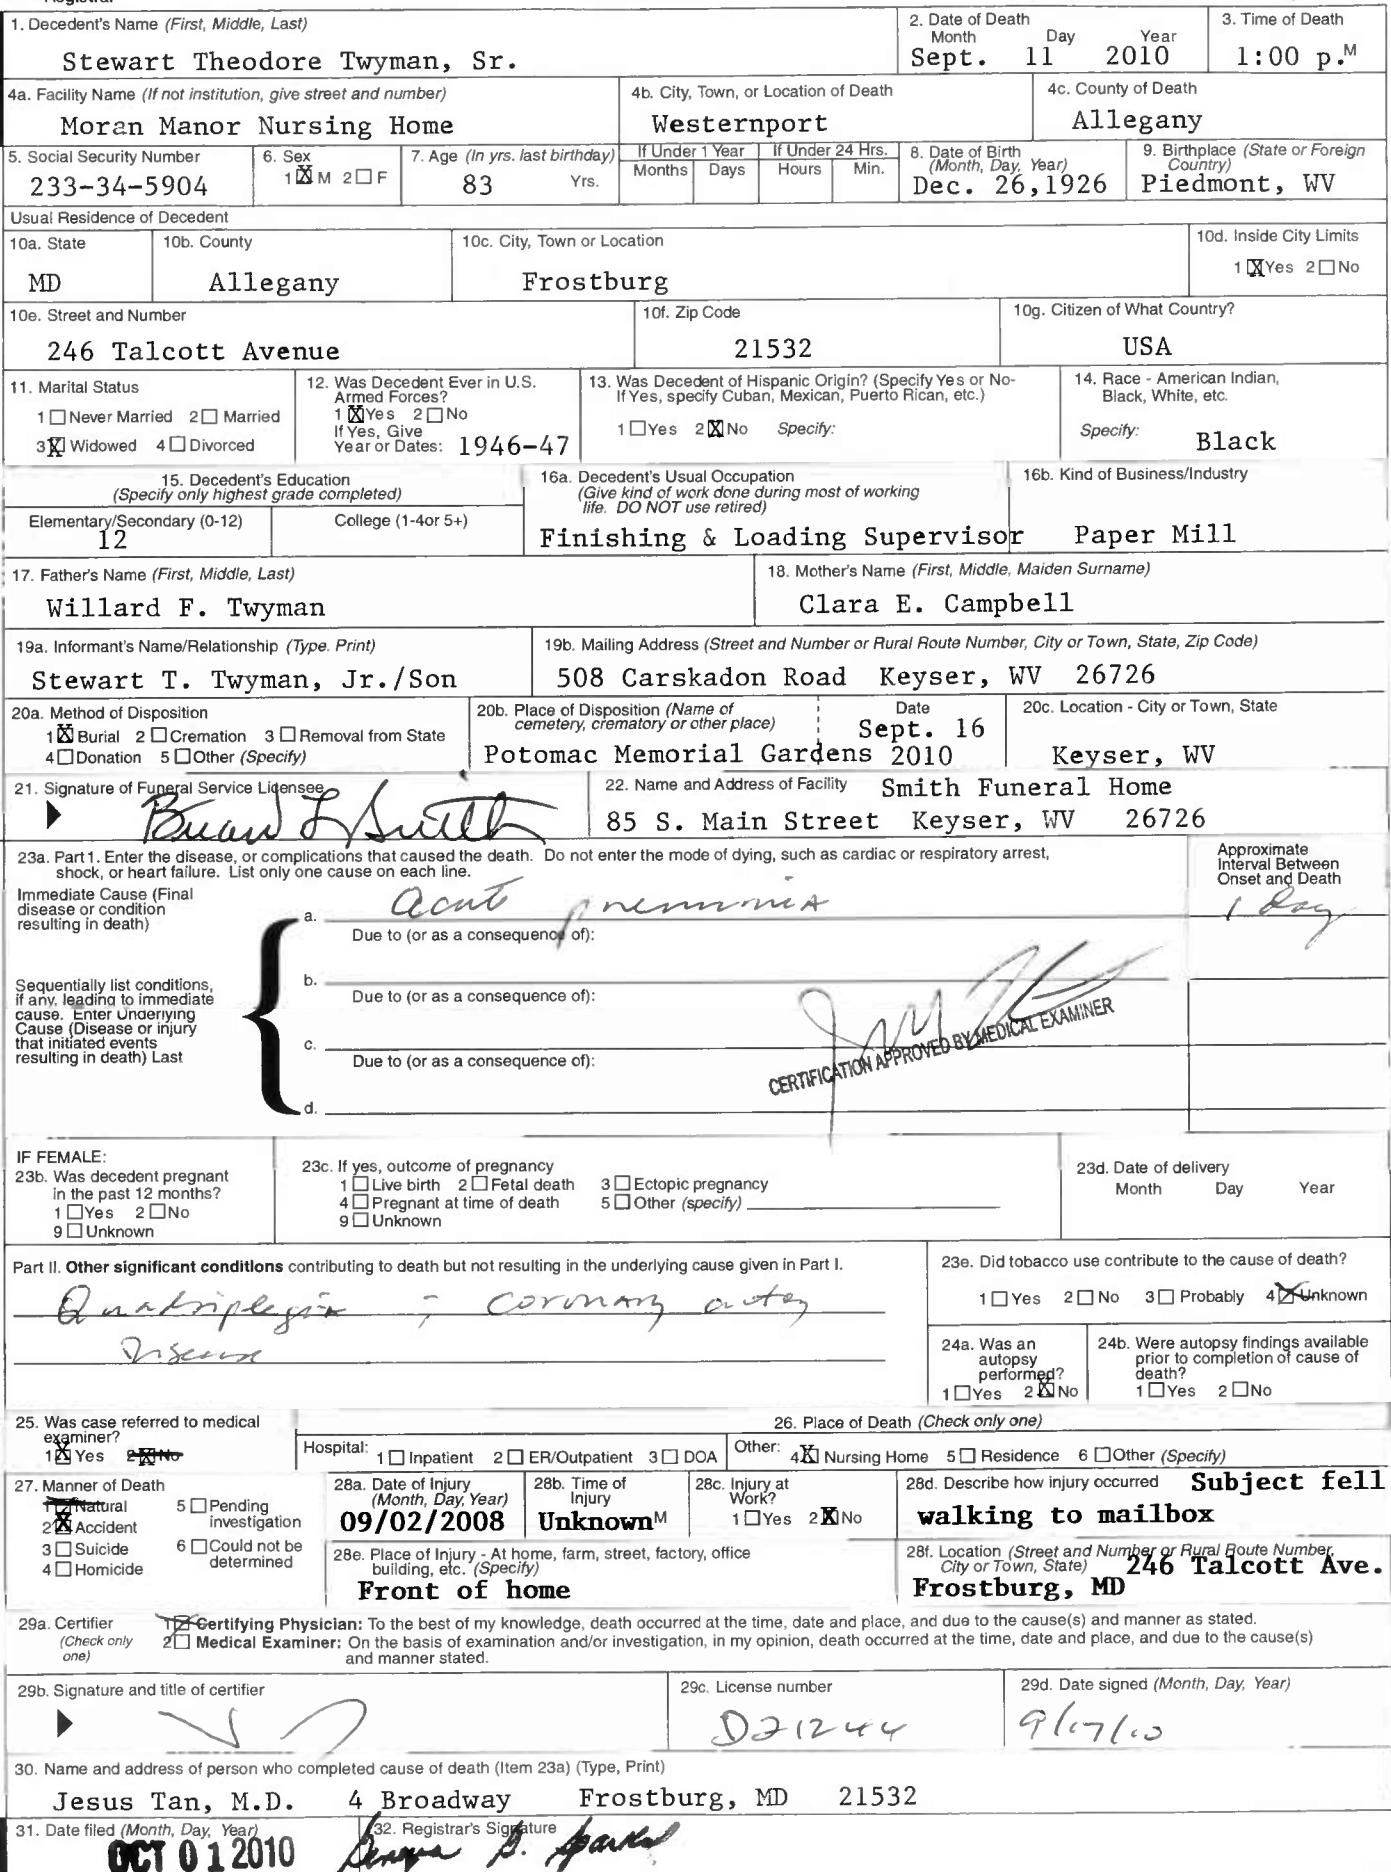 1. Decedent's Name (First, Middle, Last)
Stewart Theodore Twyman, Sr.
2. Date of Death
Month Day Year
Sept. 11 2010
3. Time of Death
1:00 p.M
4a. Facility Name (If not institution, give street and number)
Moran Manor Nursing Home
4b. City, Town, or Location of Death
Westernport
4c. County of Death
Allegany
5. Social Security Number
233-34-5904
6. Sex
1 X M 2 □ F
7. Age (In yrs. last birthday)
83 Yrs.
If Under 1 Year
Months Days
If Under 24 Hrs.
Hours Min.
8. Date of Birth
(Month, Day, Year)
Dec. 26,1926
9. Birthplace (State or Foreign
Country)
Piedmont, WV
Usual Residence of Decedent
10a. State
MD
10b. County
Allegany
10c. City, Town or Location
Frostburg
10d. Inside City Limits
1 X Yes 2 □ No
10e. Street and Number
246 Talcott Avenue
10f. Zip Code
21532
10g. Citizen of What Country?
USA
11. Marital Status
1 □ Never Married 2 □ Married
3 X Widowed 4 □ Divorced
12. Was Decedent Ever in U.S.
Armed Forces?
1 X Yes 2 □ No
If Yes, Give
Year or Dates: 1946-47
13. Was Decedent of Hispanic Origin? (Specify Yes or No-
If Yes, specify Cuban, Mexican, Puerto Rican, etc.)
1 □ Yes 2 X No Specify:
14. Race - American Indian,
Black, White, etc.
Specify: Black
15. Decedent's Education
(Specify only highest grade completed)
Elementary/Secondary (0-12)
12
College (1-4or 5+)
16a. Decedent's Usual Occupation
(Give kind of work done during most of working
life. DO NOT use retired)
Finishing & Loading Supervisor
16b. Kind of Business/Industry
Paper Mill
17. Father's Name (First, Middle, Last)
Willard F. Twyman
18. Mother's Name (First, Middle, Maiden Surname)
Clara E. Campbell
19a. Informant's Name/Relationship (Type. Print)
Stewart T. Twyman, Jr./Son
19b. Mailing Address (Street and Number or Rural Route Number, City or Town, State, Zip Code)
508 Carskadon Road Keyser, WV 26726
20a. Method of Disposition
1 X Burial 2 □ Cremation 3 □ Removal from State
4 □ Donation 5 □ Other (Specify)
20b. Place of Disposition (Name of
cemetery, crematory or other place)
Potomac Memorial Gardens
Date
Sept. 16
2010
20c. Location - City or Town, State
Keyser, WV
21. Signature of Funeral Service Licensee
22. Name and Address of Facility Smith Funeral Home
85 S. Main Street Keyser, WV 26726
23a. Part 1. Enter the disease, or complications that caused the death. Do not enter the mode of dying, such as cardiac or respiratory arrest,
shock, or heart failure. List only one cause on each line.
Approximate
Interval Between
Onset and Death
Immediate Cause (Final
disease or condition
resulting in death)
a. Acute pneumonia
1 day
Due to (or as a consequence of):
b.
Due to (or as a consequence of):
Sequentially list conditions,
if any, leading to immediate
cause. Enter Underlying
Cause (Disease or injury
that initiated events
resulting in death) Last
c.
Due to (or as a consequence of):
d.
CERTIFICATION APPROVED BY MEDICAL EXAMINER
IF FEMALE:
23b. Was decedent pregnant
in the past 12 months?
1 □ Yes 2 □ No
9 □ Unknown
23c. If yes, outcome of pregnancy
1 □ Live birth 2 □ Fetal death 3 □ Ectopic pregnancy
4 □ Pregnant at time of death 5 □ Other (specify)
9 □ Unknown
23d. Date of delivery
Month Day Year
Part II. Other significant conditions contributing to death but not resulting in the underlying cause given in Part I.
Quadriplegia ; coronary artery
Disease
23e. Did tobacco use contribute to the cause of death?
1 □ Yes 2 □ No 3 □ Probably 4 X Unknown
24a. Was an
autopsy
performed?
1 □ Yes 2 X No
24b. Were autopsy findings available
prior to completion of cause of
death?
1 □ Yes 2 □ No
25. Was case referred to medical
examiner?
1 X Yes 2 X No
26. Place of Death (Check only one)
Hospital: 1 □ Inpatient 2 □ ER/Outpatient 3 □ DOA
Other: 4 X Nursing Home 5 □ Residence 6 □ Other (Specify)
27. Manner of Death
1 □ Natural
2 X Accident
3 □ Suicide
4 □ Homicide
5 □ Pending
investigation
6 □ Could not be
determined
28a. Date of Injury
(Month, Day, Year)
09/02/2008
28b. Time of
Injury
Unknown M
28c. Injury at
Work?
1 □ Yes 2 X No
28d. Describe how injury occurred Subject fell
walking to mailbox
28e. Place of Injury - At home, farm, street, factory, office
building, etc. (Specify)
Front of home
28f. Location (Street and Number or Rural Route Number,
City or Town, State) 246 Talcott Ave.
Frostburg, MD
29a. Certifier
(Check only
one)
1 X Certifying Physician: To the best of my knowledge, death occurred at the time, date and place, and due to the cause(s) and manner as stated.
2 □ Medical Examiner: On the basis of examination and/or investigation, in my opinion, death occurred at the time, date and place, and due to the cause(s)
and manner stated.
29b. Signature and title of certifier
29c. License number
D21244
29d. Date signed (Month, Day, Year)
9/17/10
30. Name and address of person who completed cause of death (Item 23a) (Type, Print)
Jesus Tan, M.D. 4 Broadway Frostburg, MD 21532
31. Date filed (Month, Day, Year)
OCT 01 2010
32. Registrar's Signature